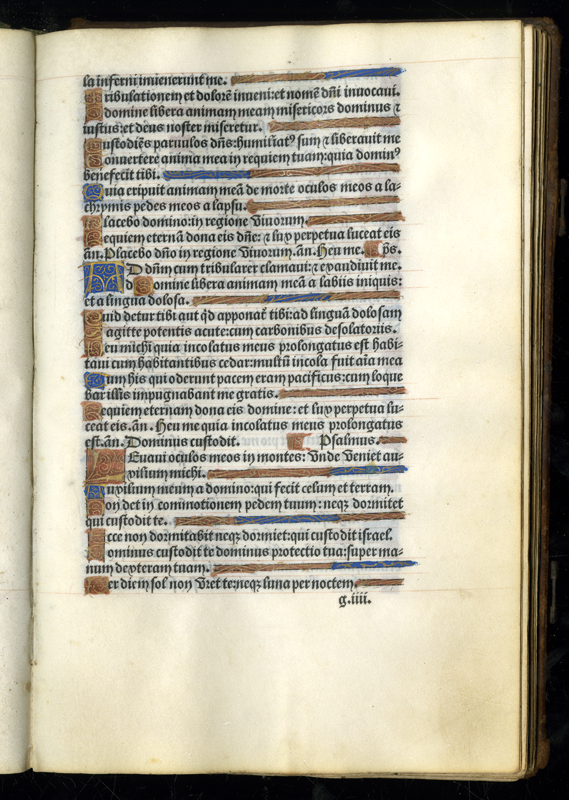 la inferni inuenerunt me.
Tribulationem et dolorē inueni: et nomē dn̄i inuocaui.
O domine libera animam meam misericors dominus ⁊
iustus: et deus noster miseretur.
Custodiēs paruulos dn̄s: humiliatꝰ sum ⁊ liberauit me
Conuertere anima mea in requiem tuam: quia dominꝰ
benefecit tibi.
Quia eripuit animam meā de morte oculos meos a la-
chrymis pedes meos a lapsu.
Placebo domino: in regione viuorum.
Requiem eternā dona eis dn̄e: ⁊ lux perpetua luceat eis
an̄. Placebo dn̄o in regione viuorum. an̄. Heu me. p̄s.
AD dn̄m cum tribularer clamaui: ⁊ exaudiuit me.
Domine libera animam meā a labiis iniquis:
et a lingua dolosa.
Quid detur tibi aut qd̄ apponat̄ tibi: ad linguā dolosam
Sagitte potentis acute: cum carbonibus desolatoriis.
Heu michi quia incolatus meus prolongatus est habi-
taui cum habitantibus cedar: multū incola fuit aīa mea
Cum his qui oderunt pacem eram pacificus: cum loque
bar illis impugnabant me gratis.
Requiem eternam dona eis domine: et lux perpetua lu-
ceat eis. an̄. Heu me quia incolatus meus prolongatus
est. an̄. Dominus custodit. Psalmus.
LEuaui oculos meos in montes: vnde veniet au-
xilium michi.
Auxilium meum a domino: qui fecit celum et terram.
Non det in cōmotionem pedem tuum: neqꝫ dormitet
qui custodit te.
Ecce non dormitabit neqꝫ dormiet: qui custodit israel.
Dominus custodit te dominus protectio tua: super ma-
num dexteram tuam.
Per diem sol non vret te: neqꝫ luna per noctem.
g.iiii.